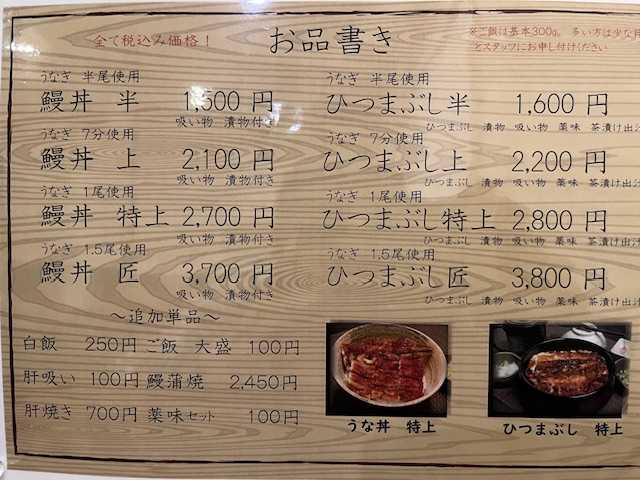 全て税込み価格！
お品書き
※ご飯は基本300g。多い方は少な
とスタッフにお申し付けください
うなぎ 半尾使用
鰻丼 半 1,500 円
吸い物 漬物付き
うなぎ 7分使用
鰻丼 上 2,100 円
吸い物 漬物付き
うなぎ 1尾使用
鰻丼 特上 2,700 円
吸い物 漬物付き
うなぎ 1.5尾使用
鰻丼 匠 3,700 円
吸い物 漬物付き
うなぎ 半尾使用
ひつまぶし半 1,600 円
ひつまぶし 漬物 吸い物 薬味 茶漬け出汁
うなぎ 7分使用
ひつまぶし上 2,200 円
ひつまぶし 漬物 吸い物 薬味 茶漬け出汁
うなぎ 1尾使用
ひつまぶし特上 2,800 円
ひつまぶし 漬物 吸い物 薬味 茶漬け出汁
うなぎ 1.5尾使用
ひつまぶし匠 3,800 円
ひつまぶし 漬物 吸い物 薬味 茶漬け出汁
～追加単品～
白飯 250円 ご飯 大盛 100円
肝吸い 100円 鰻蒲焼 2,450円
肝焼き 700円 薬味セット 100円
うな丼 特上
ひつまぶし 特上